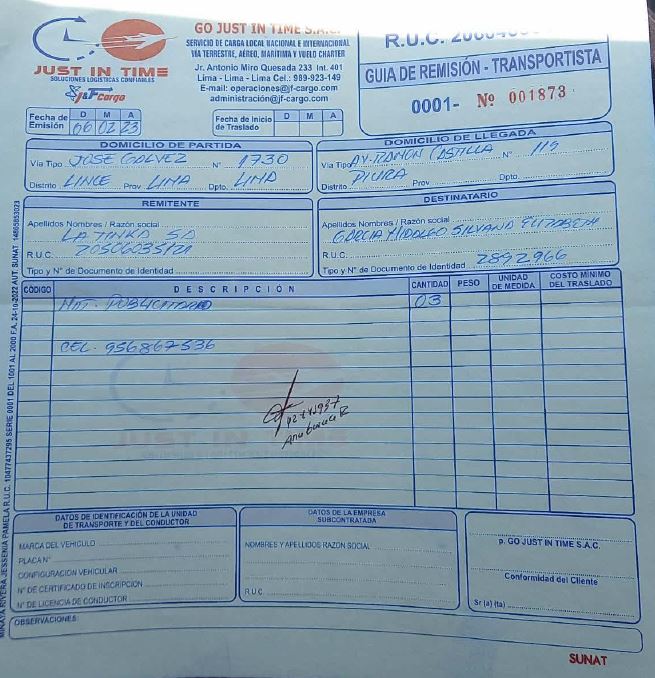 GO JUST IN TIME S.A.C.
SERVICIO DE CARGA LOCAL NACIONAL E INTERNACIONAL
VIA TERRESTRE, AÉREO, MARITIMA Y VUELO CHARTER
Jr. Antonio Miro Quesada 233 Int. 401
Lima - Lima - Lima Cel.: 989-923-149
E-mail: operaciones@jf-cargo.com
administración@jf-cargo.com
JUST IN TIME
SOLUCIONES LOGISTICAS CONFIABLES
J&F cargo
R.U.C.
GUIA DE REMISIÓN - TRANSPORTISTA
0001- Nº 001873
Fecha de Emisión D M A
06 02 23
Fecha de Inicio de Traslado D M A
DOMICILIO DE PARTIDA
Via Tipo JOSE GALVEZ N° 1730
Distrito LINCE Prov LIMA Dpto. LIMA
DOMICILIO DE LLEGADA
Via Tipo AV. RAMON CASTILLA N° 119
Distrito PIURA Prov Dpto.
REMITENTE
Apellidos Nombres / Razón social
LA TINKA SA
R.U.C.
Tipo y N° de Documento de Identidad
DESTINATARIO
Apellidos Nombres / Razón social
GARCIA HIDALGO SILVANA ELIZABETH
R.U.C.
Tipo y N° de Documento de Identidad 2892966
CÓDIGO DESCRIPCIÓN CANTIDAD PESO UNIDAD DE MEDIDA COSTO MÍNIMO DEL TRASLADO
MAT. PUBLICITARIO 03
CEL. 956867536
DATOS DE IDENTIFICACIÓN DE LA UNIDAD
DE TRANSPORTE Y DEL CONDUCTOR
MARCA DEL VEHICULO
PLACA N°
CONFIGURACIÓN VEHICULAR
N° DE CERTIFICADO DE INSCRIPCION
N° DE LICENCIA DE CONDUCTOR
DATOS DE LA EMPRESA
SUBCONTRATADA
NOMBRES Y APELLIDOS RAZON SOCIAL
R.U.C.
p. GO JUST IN TIME S.A.C.
Conformidad del Cliente
Sr (a) (ta)
OBSERVACIONES:
SUNAT
MINAYA RIVERA JESSENIA PAMELA R.U.C. 10477437295 SERIE 0001 DEL 1001 AL 2000 F.A. 24-10-2022 AUT. SUNAT